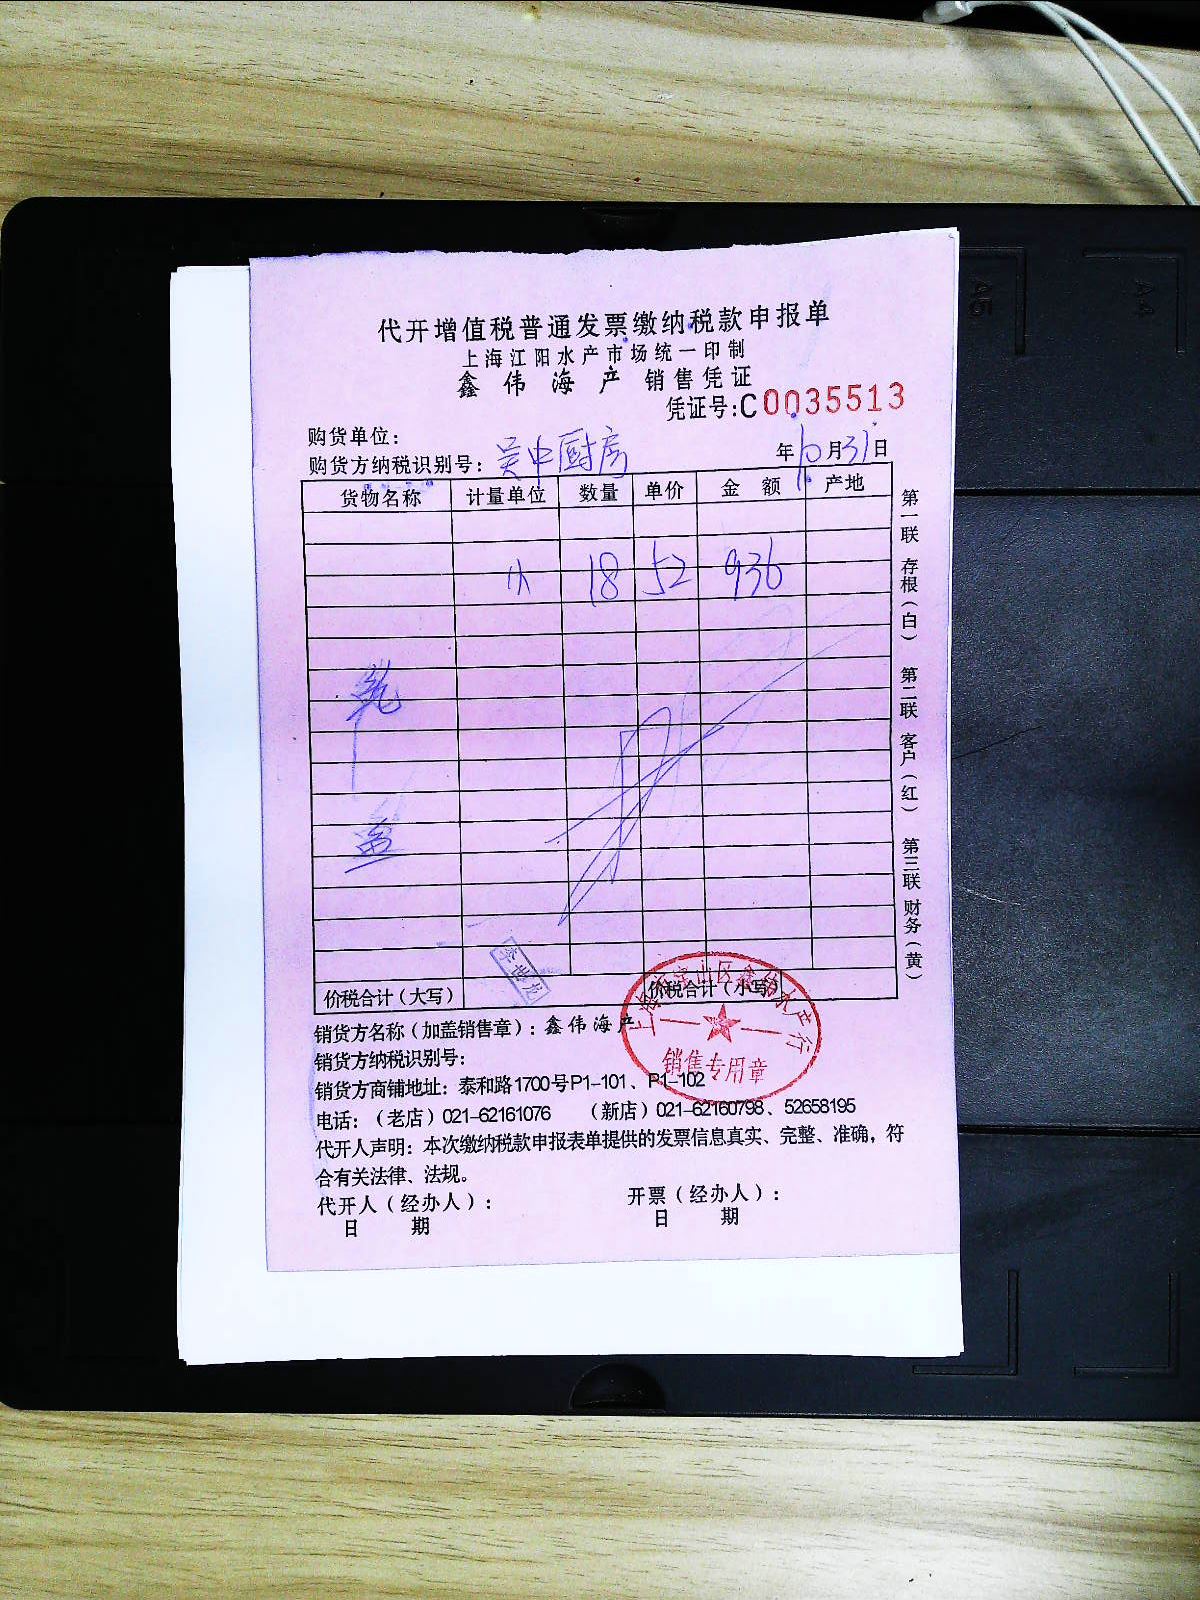 代开增值税普通发票缴纳税款申报单
上海江阳水产市场统一印制
鑫伟海产 销售凭证
凭证号:C0035513
购货单位:
购货方纳税识别号: 吴中厨房 年10月31日
货物名称 计量单位 数量 单价 金额 产地
18 52 936
鲍
鱼
李世龙
价税合计(大写) 价税合计(小写)
销货方名称(加盖销售章): 鑫伟海产
销货方纳税识别号:
销货方商铺地址: 泰和路1700号P1-101、P1-102
电话:(老店)021-62161076 (新店)021-62160798、52658195
代开人声明: 本次缴纳税款申报表单提供的发票信息真实、完整、准确,符
合有关法律、法规。
代开人(经办人): 开票(经办人):
日 期 日 期
第一联 存根(白) 第二联 客户(红) 第三联 财务(黄)
上海市宝山区鑫伟水产行
销售专用章
A5
A4